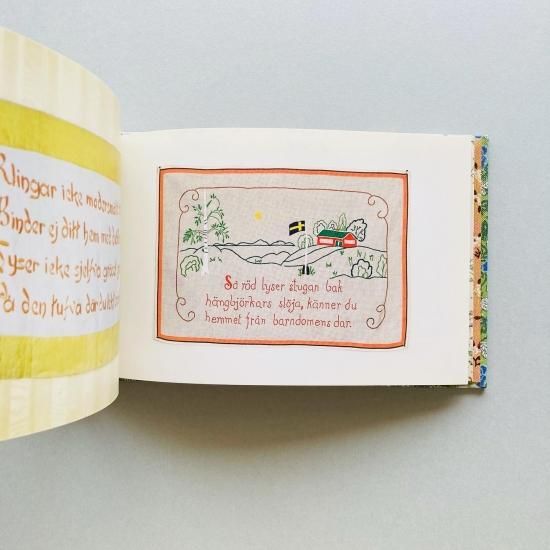 Klingar icke modersmål
Binder ej ditt hem med
Lyser icke själva
På den tufva där du
Så röd lyser stugan bak
hängbjörkars slöja, känner du
hemmet från barndomens dar.